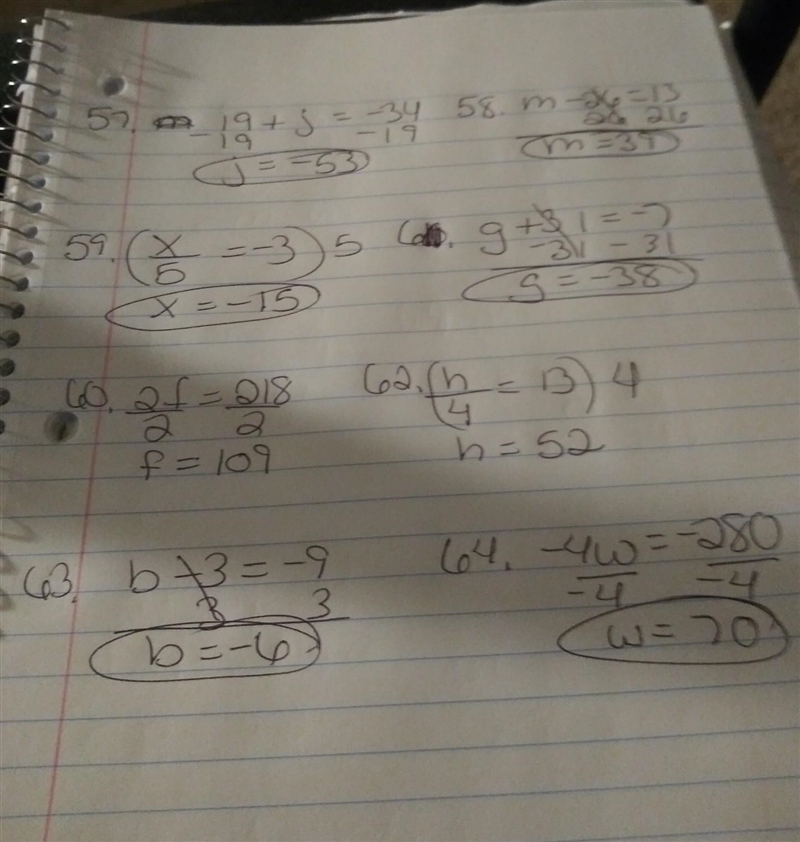 57. 19 + j = -34
-19 -19
j = -53
58. m - 26 = 13
26 26
m = 39
59. (x/5 = -3) 5
x = -15
60. g + 31 = -7
-31 - 31
g = -38
60. 2f = 218
2 2
f = 109
62. (h/4 = 13) 4
h = 52
63. b - 3 = -9
3 3
b = -6
64. -4w = -280
-4 -4
w = 70